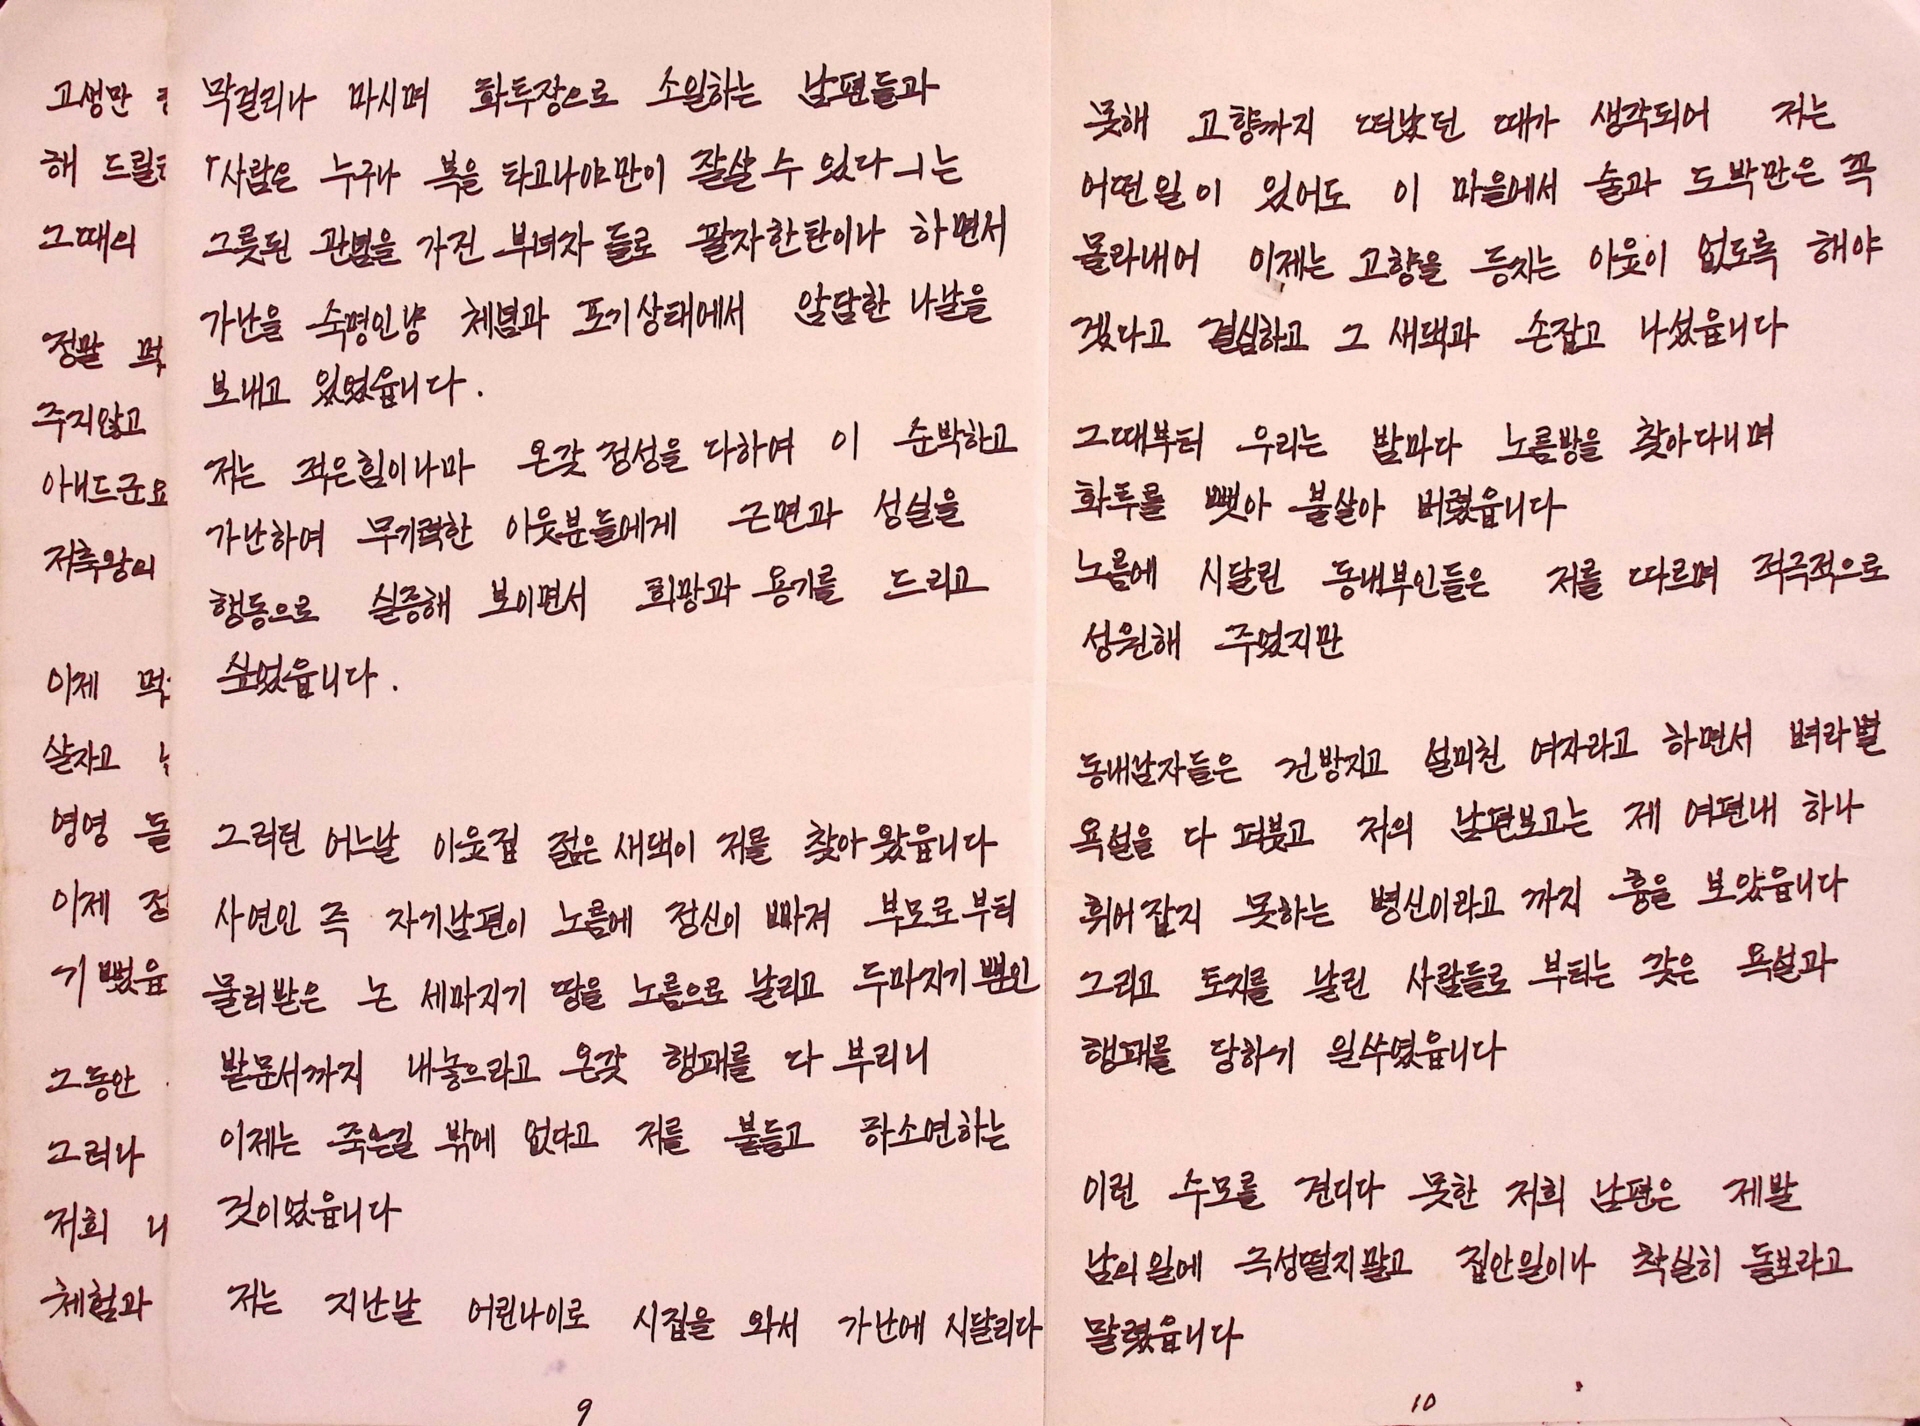 고생만
해 드릴
그때의
정말 먹
주지않고
아내드군요
저축왕의
이제 먹
살자고
영영 돌
이제 정
기뻤읍
그동안
그러나
저희 나
체험과
막걸리나 마시며 화투장으로 소일하는 남편들과
「사람은 누구나 복을 타고나야만이 잘살 수 있다」는
그릇된 관념을 가진 부녀자 들로 팔자한탄이나 하면서
가난을 숙명인냥 체념과 포기상태에서 암담한 나날을
보내고 있었읍니다.
저는 적은힘이나마 온갖 정성을 다하여 이 순박하고
가난하여 무기력한 이웃분들에게 근면과 성실을
행동으로 실증해 보이면서 희망과 용기를 드리고
싶었읍니다.
그러던 어느날 이웃집 젊은 새댁이 저를 찾아 왔읍니다
사연인 즉 자기남편이 노름에 정신이 빠져 부모로부터
물려받은 논 세마지기 땅을 노름으로 날리고 두마지기뿐인
밭문서까지 내놓으라고 온갖 행패를 다 부리니
이제는 죽는길 밖에 없다고 저를 붙들고 하소연하는
것이었읍니다
저는 지난날 어린나이로 시집을 와서 가난에 시달리다
9
못해 고향까지 떠났던 때가 생각되어 저는
어떤일이 있어도 이 마을에서 술과 도박만은 꼭
몰라내어 이제는 고향을 등지는 이웃이 없도록 해야
겠다고 결심하고 그 새댁과 손잡고 나섰읍니다
그때부터 우리는 밤마다 노름방을 찾아다니며
화투를 뺏아 불살아 버렸읍니다
노름에 시달린 동내부인들은 저를 따르며 적극적으로
성원해 주었지만
동내남자들은 건방지고 설미친 여자라고 하면서 벼라별
욕설을 다 퍼붓고 저의 남편보고는 제 여편내 하나
휘어잡지 못하는 병신이라고 까지 흉을 보았읍니다
그리고 토지를 날린 사람들로 부터는 갖은 욕설과
행패를 당하기 일쑤였읍니다
이런 수모를 견디다 못한 저희 남편은 제발
남의일에 극성떨지말고 집안일이나 착실히 돌보라고
말렸읍니다
10